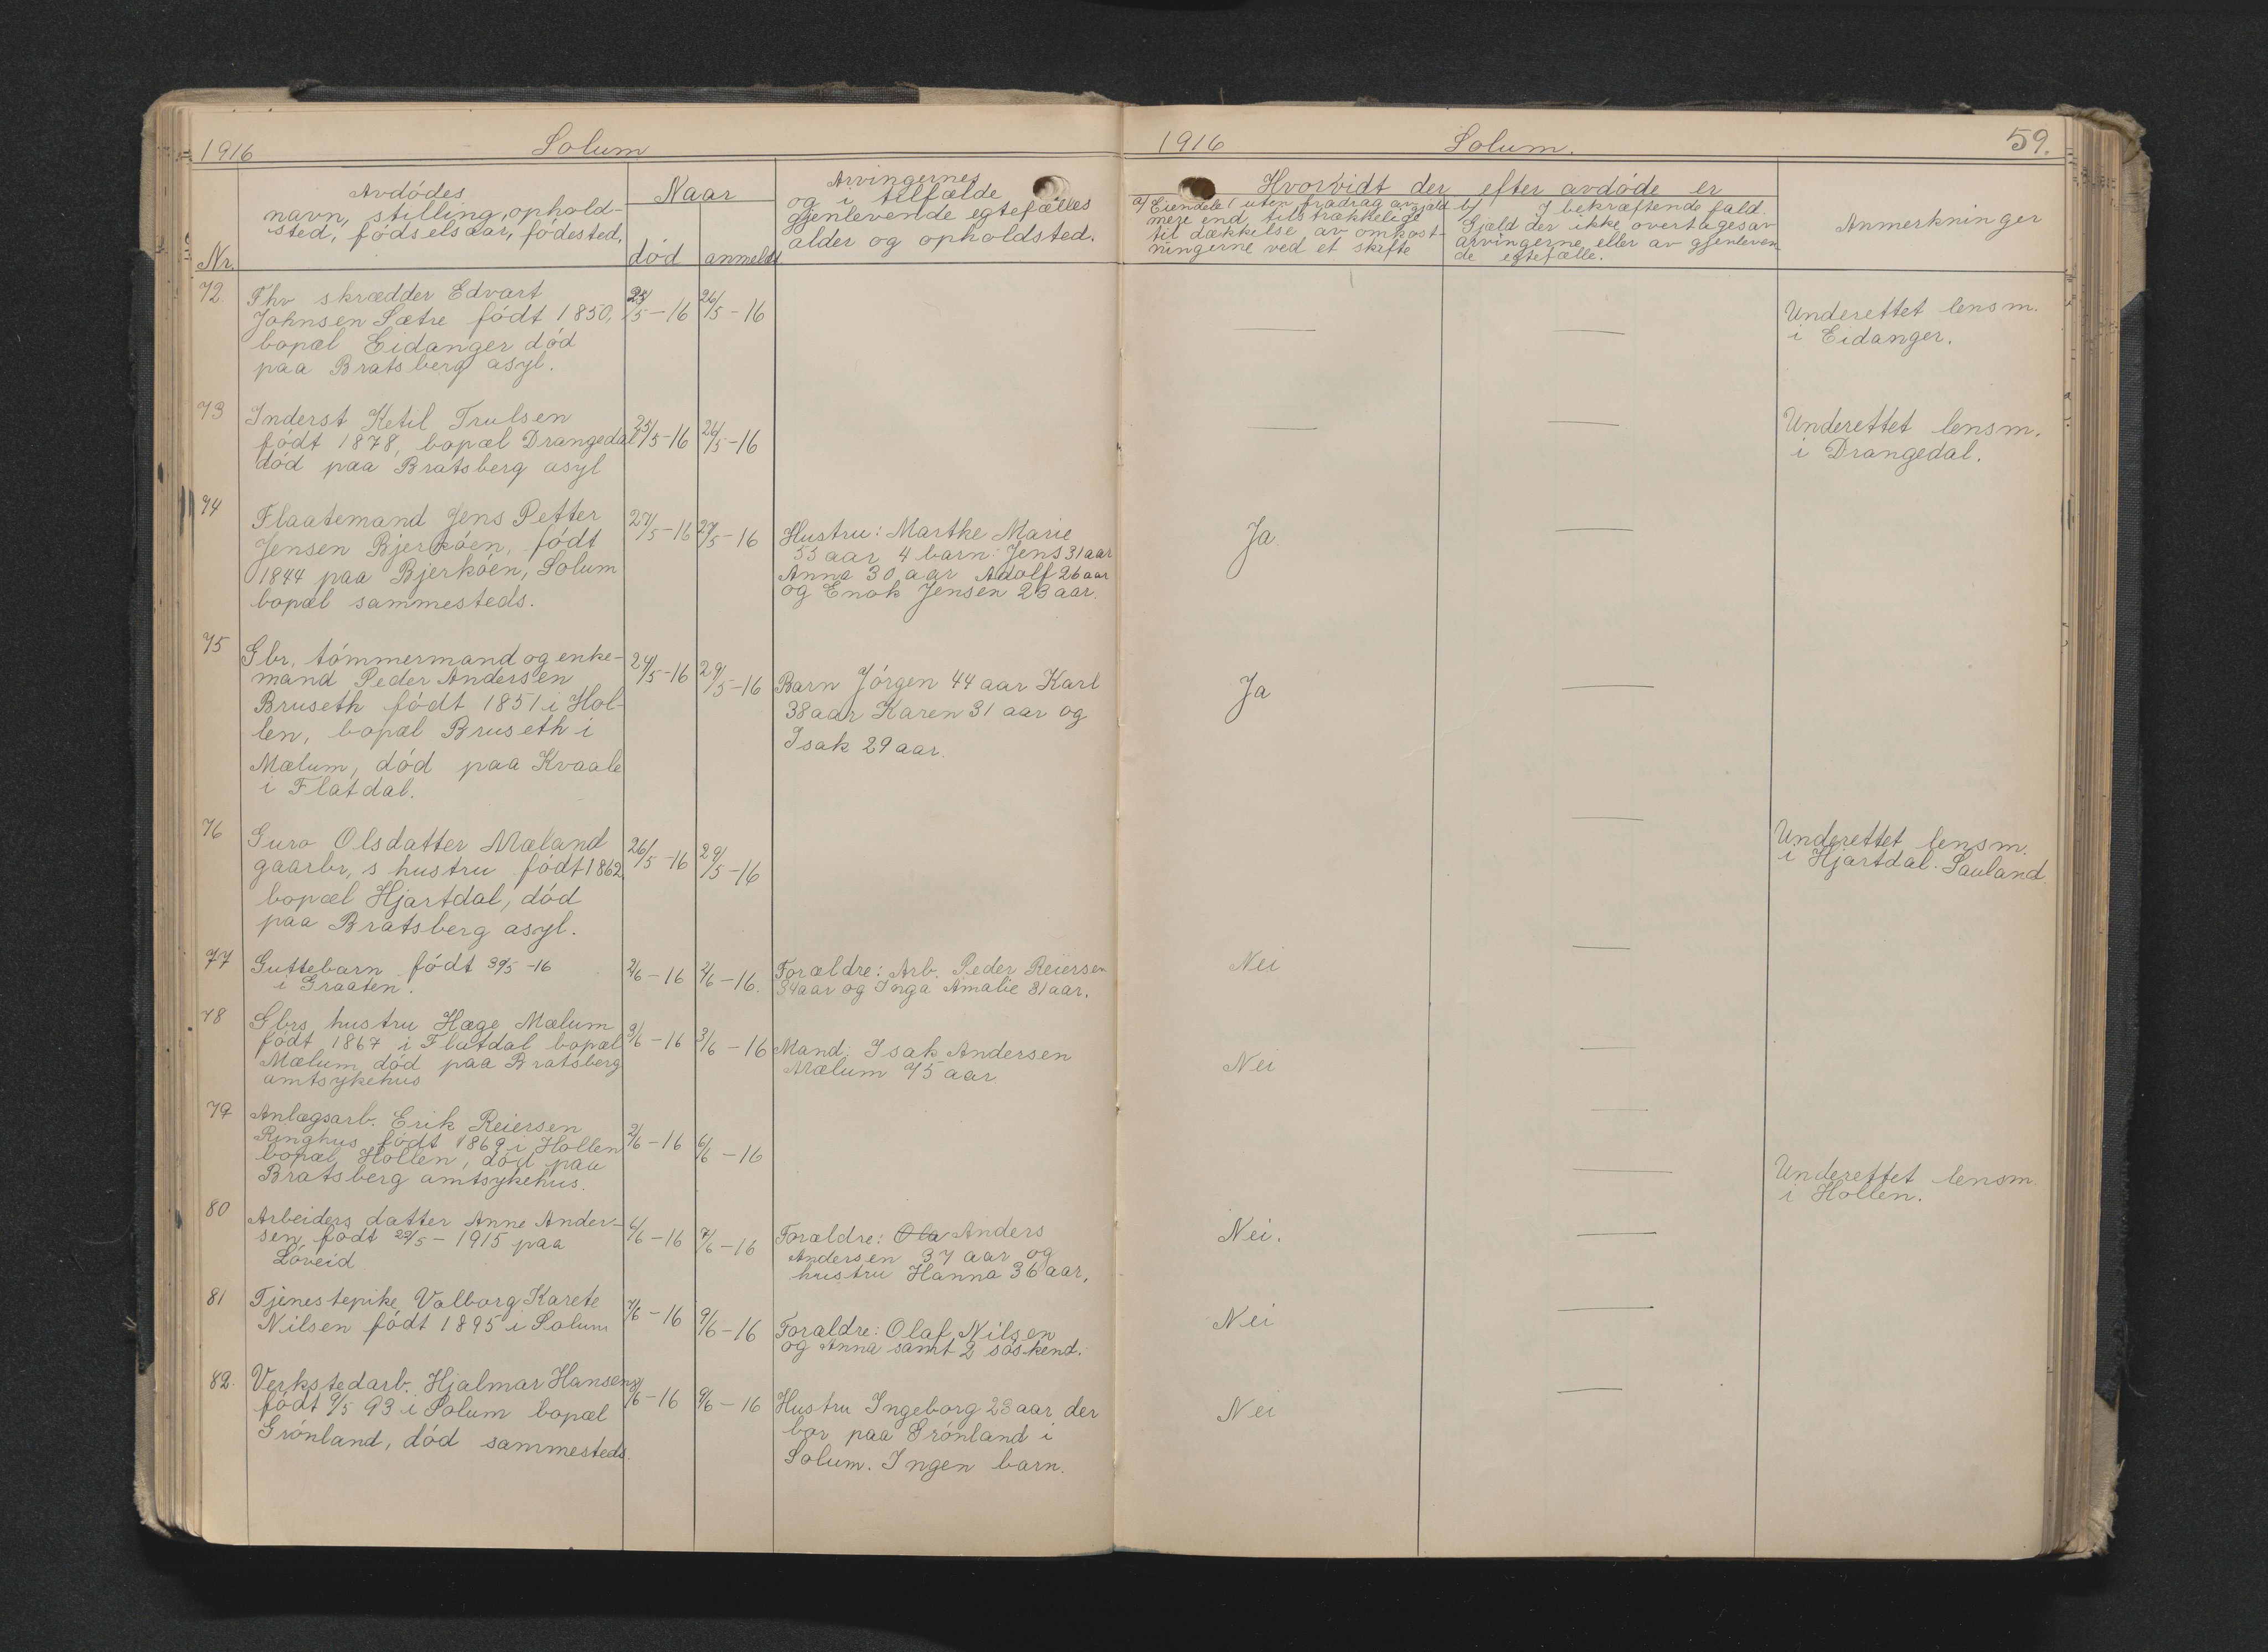 1916 Solum
Nr.
Avdødes
navn, stilling, ophold-
sted, fødselsaar, fødested.
Naar
død anmeldt
Arvingernes
og i tilfælde
gjenlevende egtefælles
alder og opholdsted.
72. Fhv skrædder Edvart
Johnsen Sætre født 1850,
bopæl Eidanger død
paa Bratsberg asyl.
25/5-16 26/5-16
73 Inderst Ketil Trulsen
født 1878, bopæl Drangedal
død paa Bratsberg asyl
25/5-16 26/5-16
74 Flaatemand Jens Petter
Jensen Bjerkøen, født
1844 paa Bjerkøen, Solum
bopæl sammesteds.
27/5-16 27/5-16
Hustru: Marthe Marie
55 aar 4 barn: Jens 31 aar
Anna 30 aar Adolf 26 aar
og Enok Jensen 23 aar.
75 Gbr, tømmermand og enke-
mand Peder Andersen
Bruseth født 1851 i Hol-
len, bopæl Bruseth i
Mælum, død paa Kvaale
i Flatdal.
24/5-16 29/5-16
Barn Jørgen 44 aar Karl
38 aar Karen 31 aar og
Isak 29 aar.
76 Guro Olsdatter Mæland
gaarbr,s hustru født 1862
bopæl Hjartdal, død
paa Bratsberg asyl.
26/5-16 29/5-16
77 Guttebarn født 30/5-16
i Graaten.
2/6-16 2/6-16.
Forældre: Arb. Peder Reiersen
34 aar og Inga Amalie 31 aar.
78 Gbrs hustru Hæge Mælum
født 1867 i Flatdal bopæl
Mælum død paa Bratsberg
amtsykehus
3/6-16 3/6-16
Mand: Isak Andersen
Mælum 75 aar.
79 Anlægsarb. Erik Reiersen
Ringhus født 1869 i Hollen
bopæl Hollen, død paa
Bratsberg amtsykehus.
2/6-16 6/6-16
80 Arbeiders datter Anne Ander-
sen født 22/5-1915 paa
Løveid
6/6-16 7/6-16
Forældre: Ola Anders
Andersen 37 aar og
hustru Hanna 36 aar,
81 Tjenestepike Valborg Karete
Nilsen født 1895 i Solum
7/6-16 9/6-16
Forældre: Olaf Nilsen
og Anna samt 2 søskend.
82. Verkstedarb. Hjalmar Hansen
født 9/5 93 i Solum bopæl
Grønland, død sammesteds.
8/6-16 9/6-16
Hustru Ingeborg 23 aar der
bor paa Grønland i
Solum. Ingen barn.
1916 Solum. 59.
Hvorvidt der efter avdøde er
a) Eiendele uten fradrag av gjæld
mere end tilstrækkelige
til dækkelse av omkost-
ningerne ved et skifte
b) I bekræftende fald.
Gjæld der ikke overtages av
arvingerne eller av gjenleven
de egtefælle.
Anmerkninger
Underettet lensm.
i Eidanger.
Underettet lensm.
i Drangedal.
Ja
Ja
Underettet lensm.
i Hjartdal. Sauland.
Nei
Nei
Underettet lensm
i Hollen.
Nei.
Nei
Nei